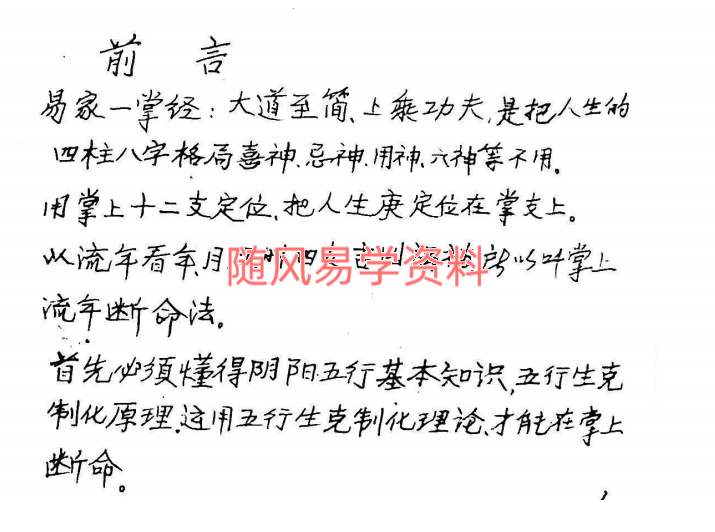 前 言
易家一掌经：大道至简、上乘功夫，是把人生的
四柱八字格局喜神、忌神、用神、六神等不用。
用掌上十二支定位、把人生庚定位在掌支上。
以流年看年、月
随风易学资料
所以叫掌上
流年断命法。
首先必须懂得阴阳五行基本知识，五行生克
制化原理，运用五行生克制化理论、才能在掌上
断命。